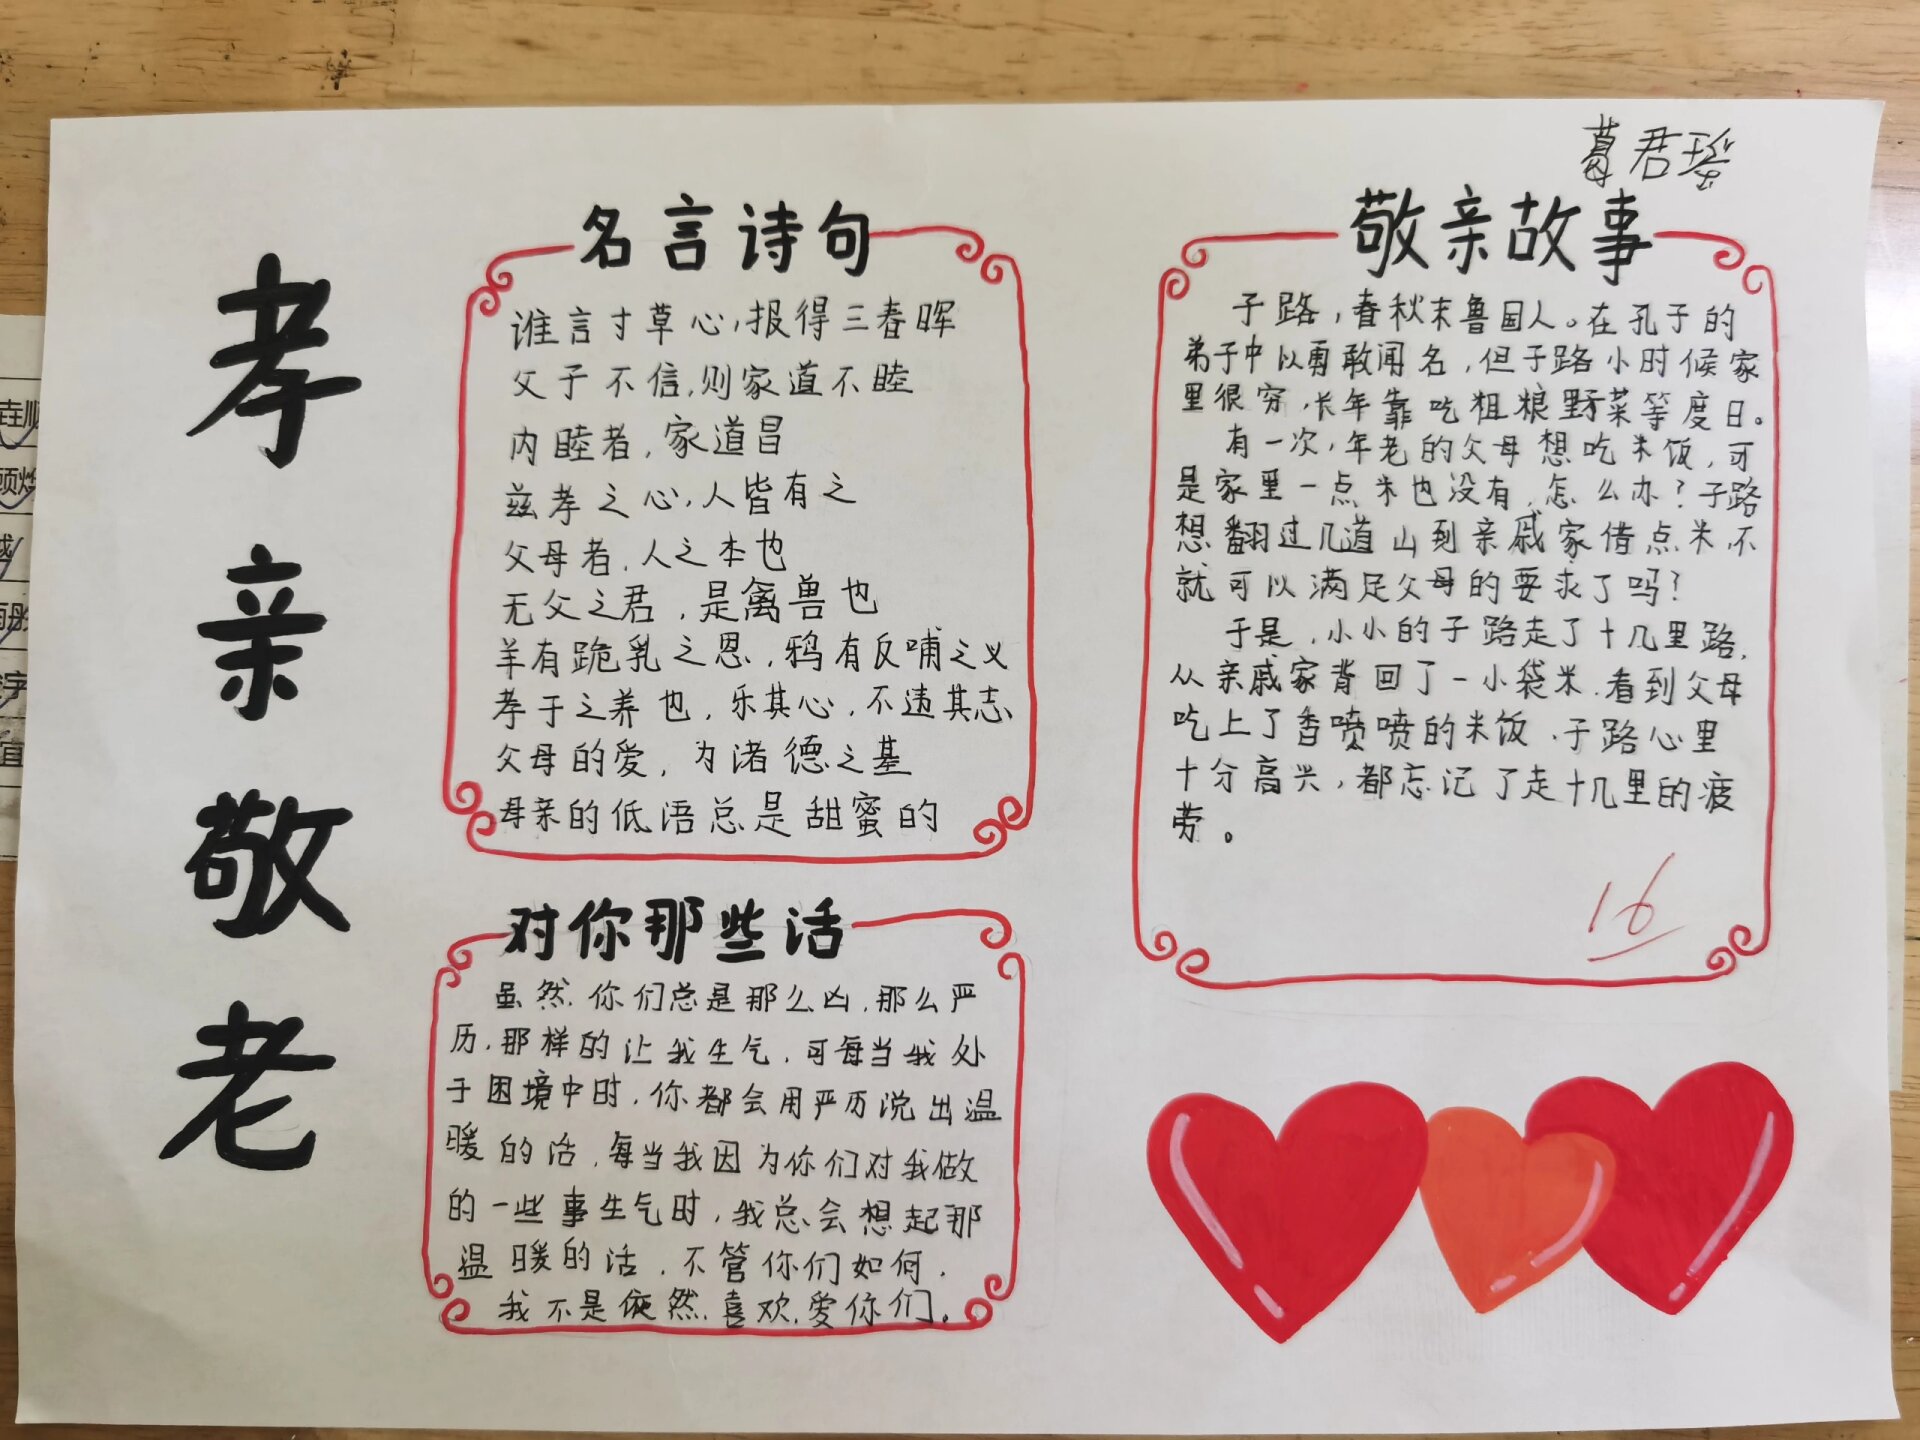 孝亲敬老
名言诗句
谁言寸草心,报得三春晖
父子不信,则家道不睦
内睦者,家道昌
兹孝之心,人皆有之
父母者,人之本也
无父之君,是禽兽也
羊有跪乳之恩,鸦有反哺之义
孝于之养也,乐其心,不违其志
父母的爱,为渚德之基
母亲的低语总是甜蜜的
对你那些话
虽然,你们总是那么凶,那么严
历,那样的让我生气,可每当我处
于困境中时,你都会用严历说出温
暖的话,每当我因为你们对我做
的一些事生气时,我总会想起那
温暖的话,不管你们如何,
我不是依然,喜欢,爱你们。
葛君瑶
敬亲故事
子路,春秋末鲁国人。在孔子的
弟子中以勇敢闻名,但子路小时候家
里很穷,长年靠吃粗粮野菜等度日。
有一次,年老的父母想吃米饭,可
是家里一点米也没有,怎么办?子路
想翻过几道山到亲戚家借点米,不
就可以满足父母的要求了吗?
于是,小小的子路走了十几里路,
从亲戚家背回了一小袋米,看到父母
吃上了香喷喷的米饭,子路心里
十分高兴,都忘记了走十几里的疲
劳。
16